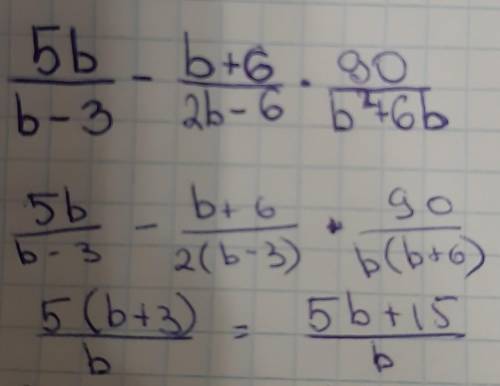 5b/(b-3) - (b+6)/(2b-6) · 90/(b²+6b)
5b/(b-3) - (b+6)/(2(b-3)) · 90/(b(b+6))
5(b+3)/b = (5b+15)/b